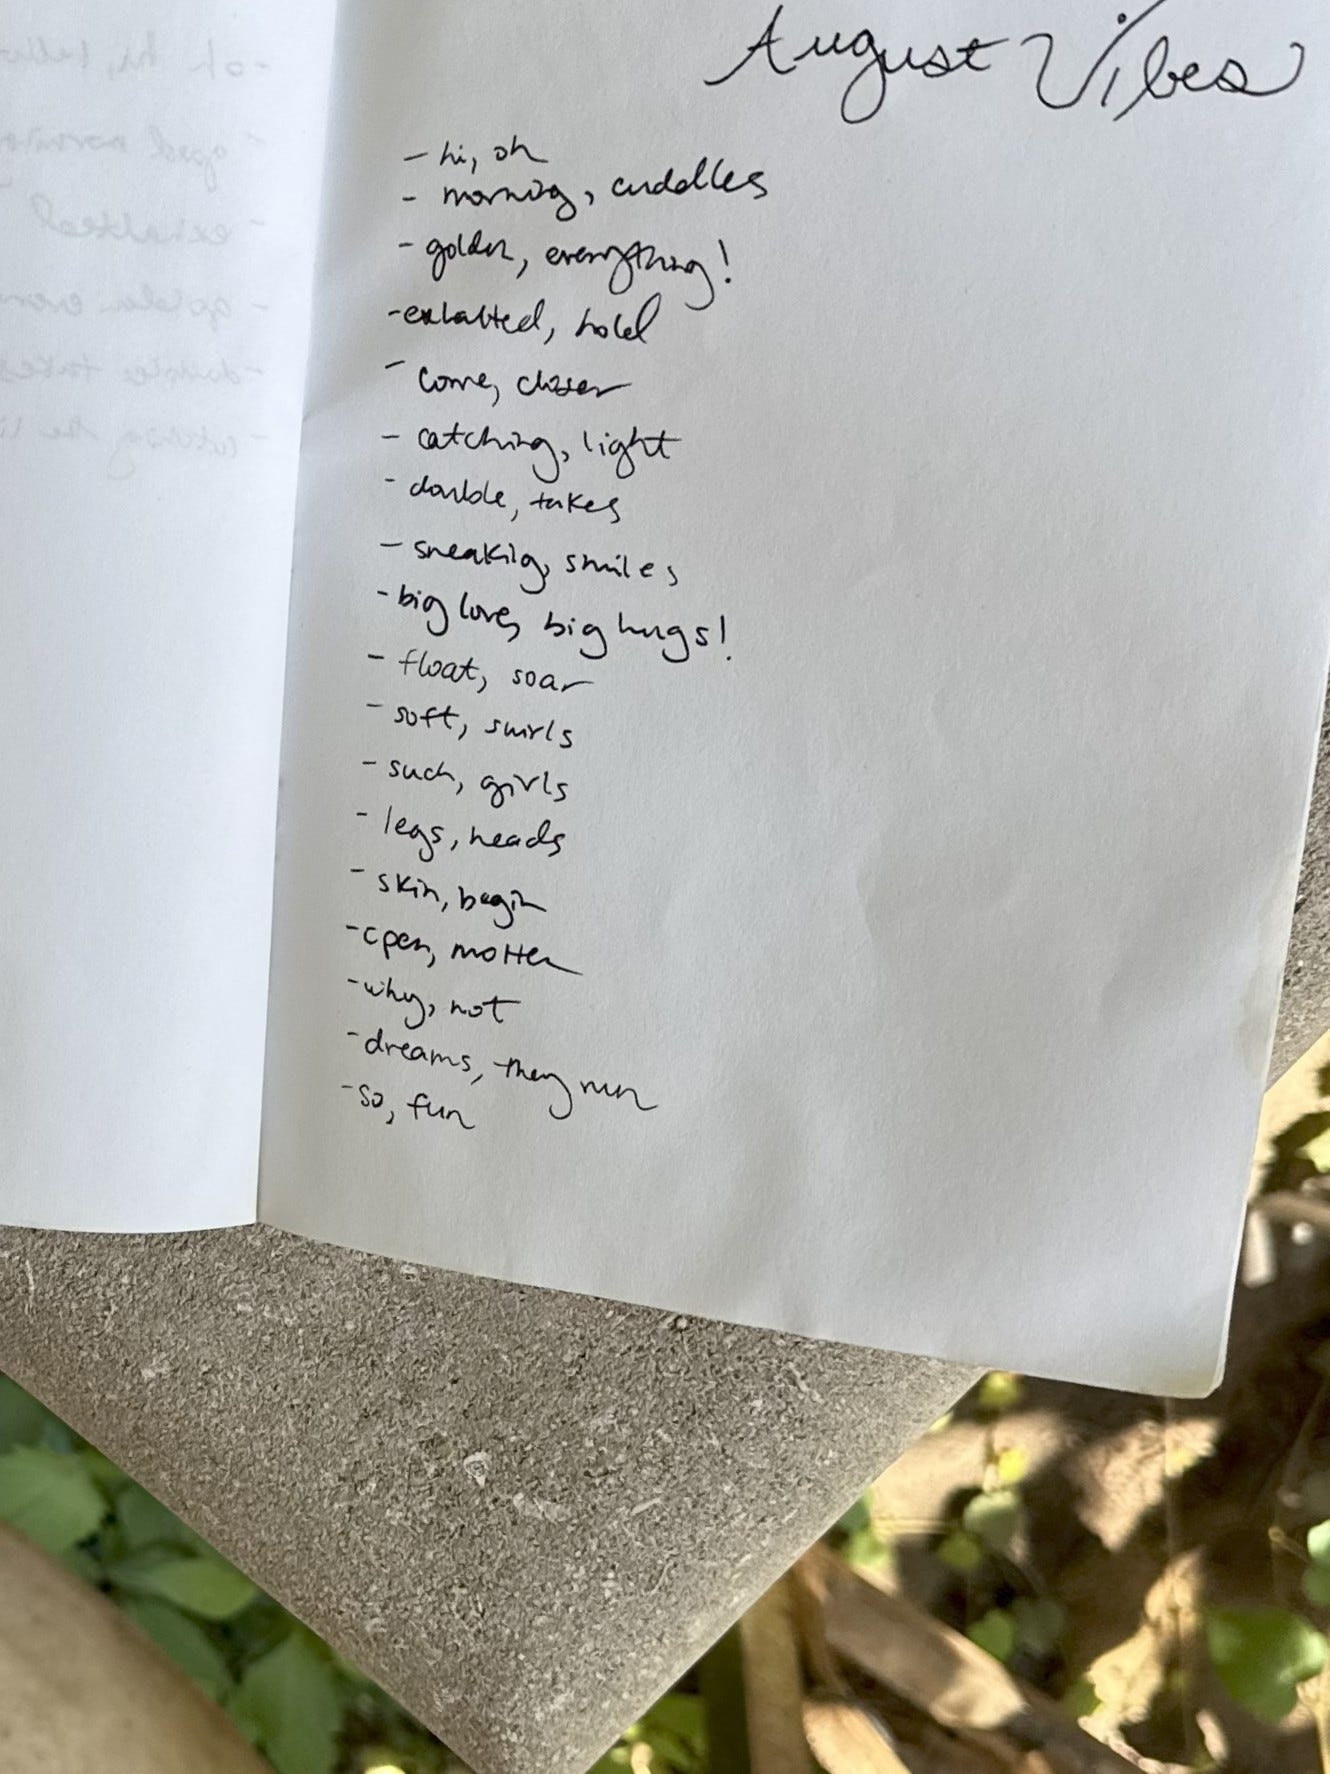 August Vibes
- hi, oh
- morning, cuddles
- golden, everything!
- exhalted, hold
- come, closer
- catching, light
- double, takes
- sneaking, smiles
- big love, big hugs!
- float, soar
- soft, swirls
- such, girls
- legs, heads
- skin, begin
- open, molten
- why, not
- dreams, they run
- so, fun